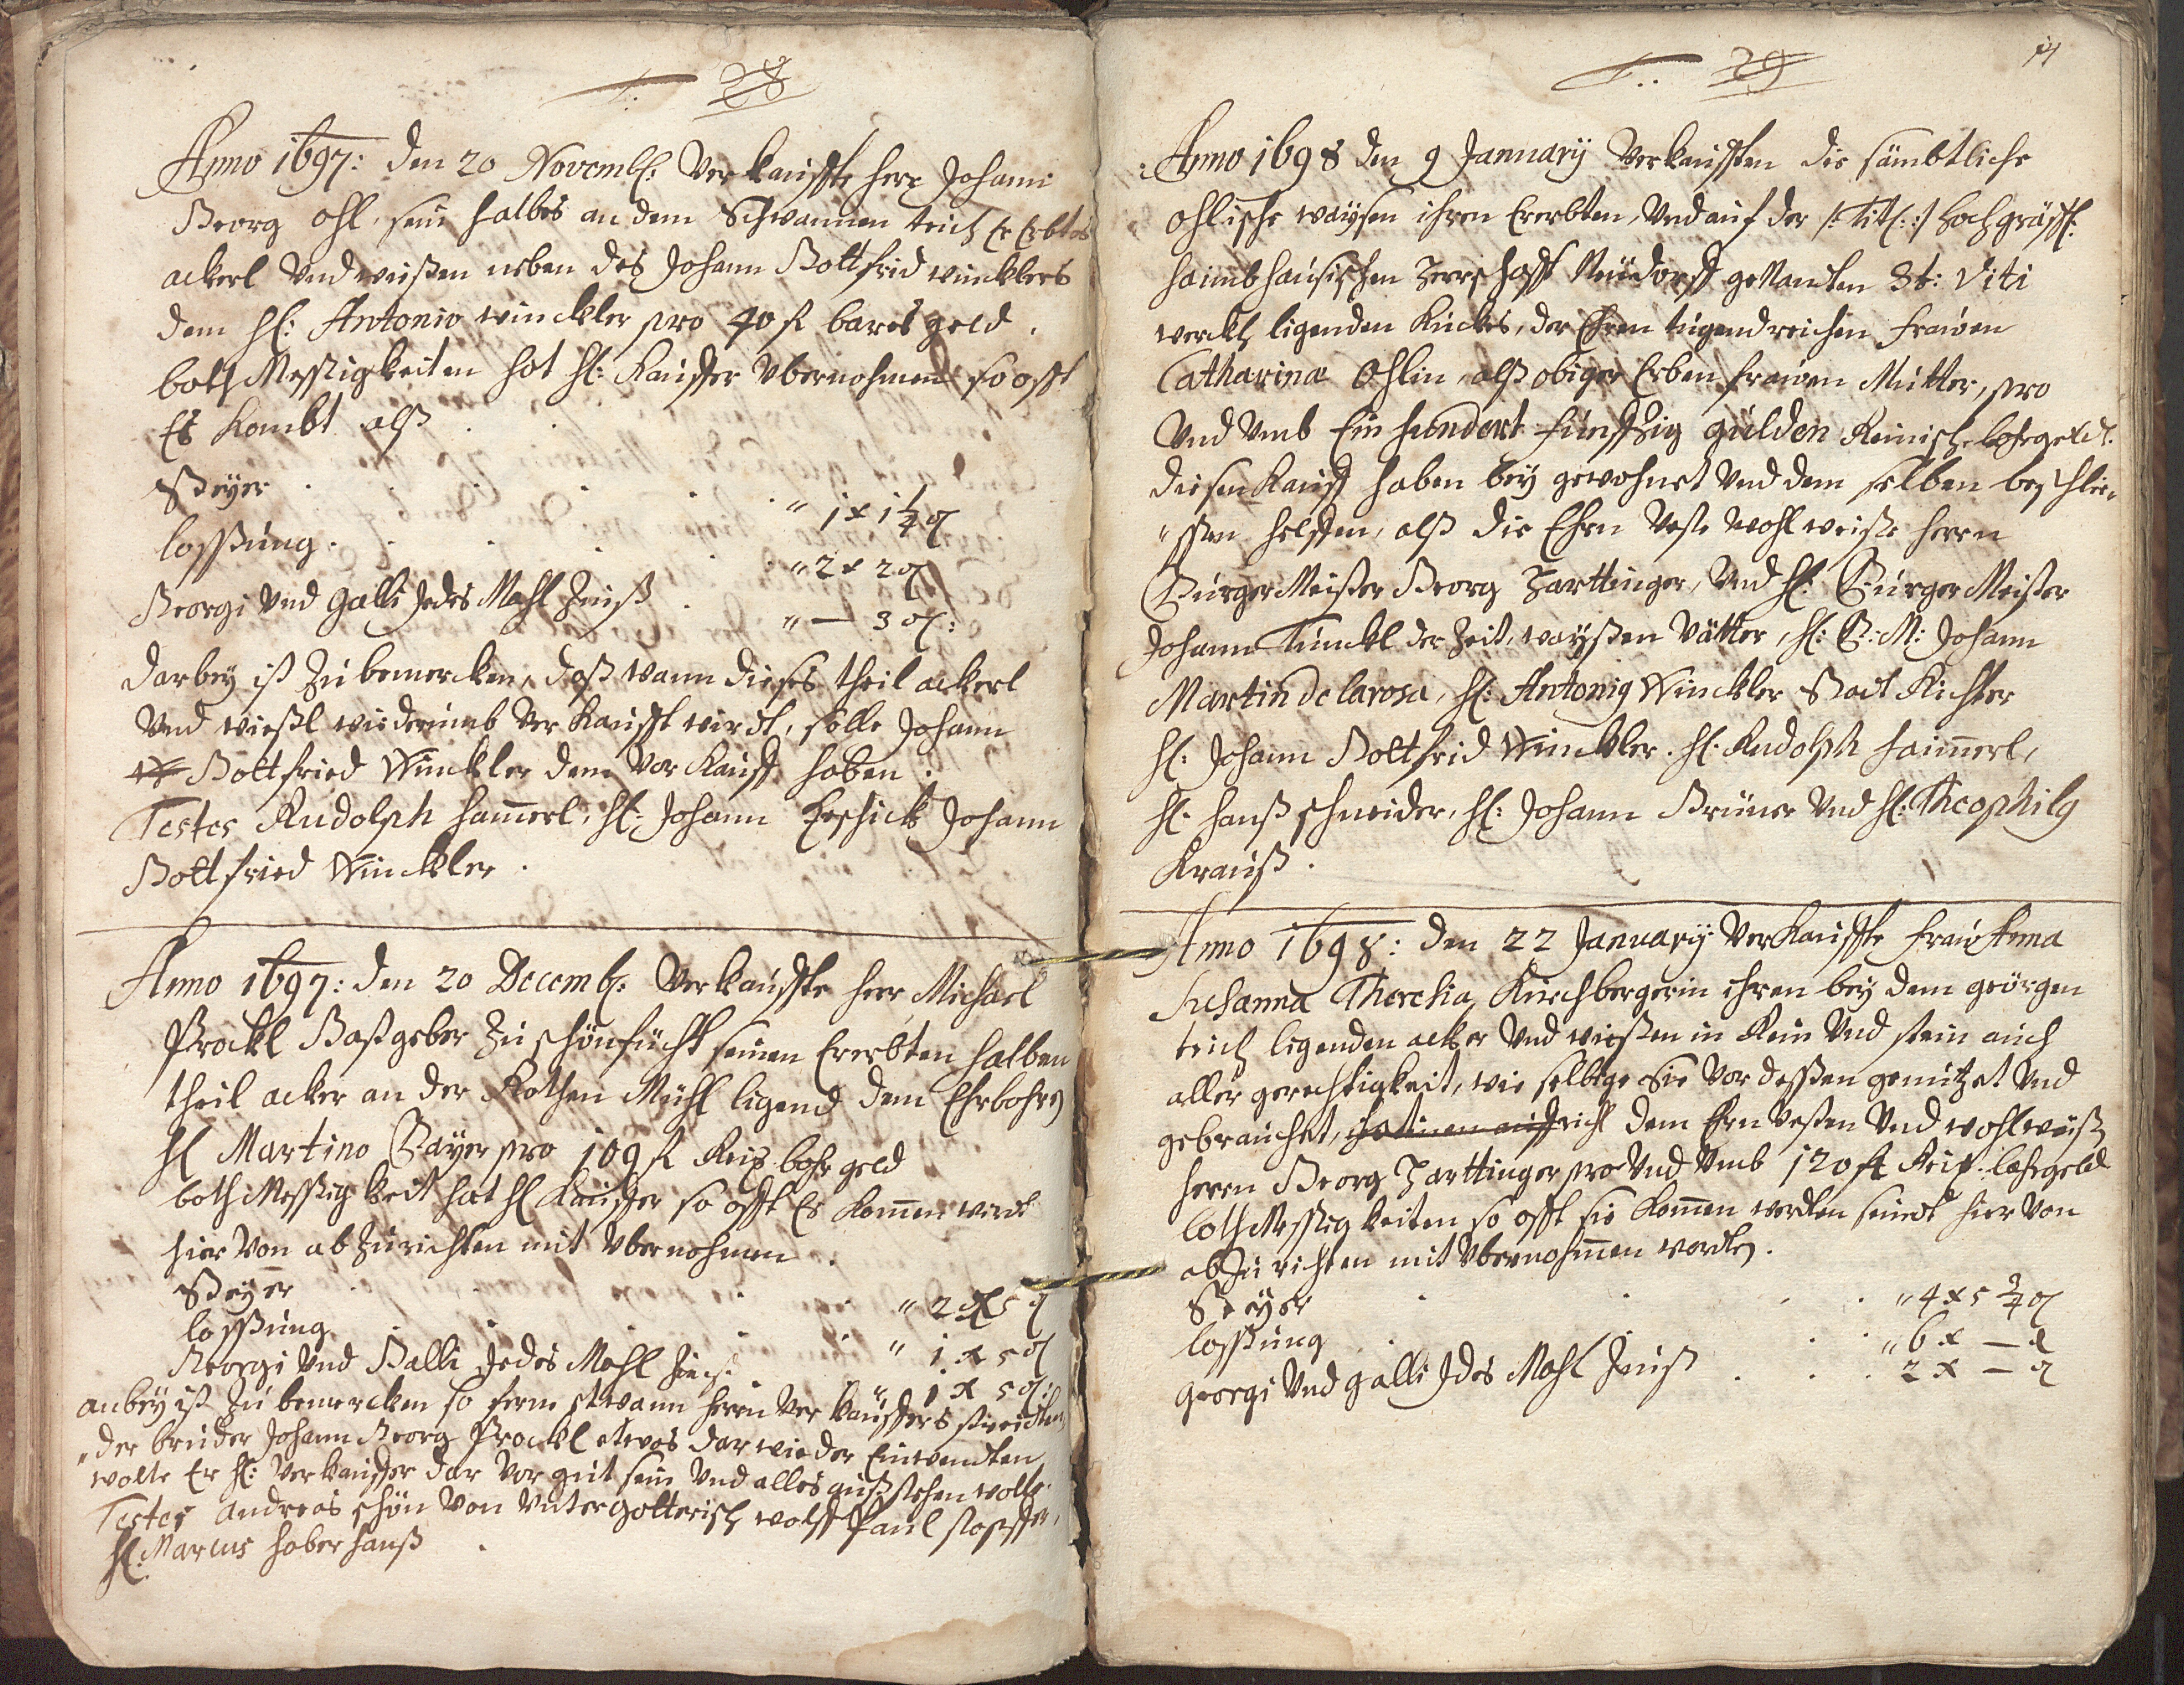 28
Anno 1697: den 20 Novemb: Verkauffte herr Johann
Georg Ohl, sein halbes an dem Schwannen teich Ererbtes
ackerl Vnd wießen neben des Johann Gottfrid wincklers
dem H: Antonio winckler pro 40 fl bares geld.
both Messigkeiten hat H: Kauffer Vbernohmen so offt
Es Kombt alß
Steyer . . . . " 1 x 1 1/4 ₰
lossung . . . . " 2 x 2 ₰
Georgi Vnd Galli Jedes Mahl Zinß . " — 3 ₰:
darbey ist Zu bemercken, daß wann dieses theil ackerl
Vnd wießl wiederumb Ver Kaufft wirdt, solle Johann
Gottfried Winckler den Vor Kauff haben.
Testes Rudolph hamerl, H: Johann Johann
Gottfried Winckler.
Anno 1697: den 20 Decemb: Verkauffte herr Michael
Prockl Gastgeber Zu schönfücht seinen Ererbten halben
theil acker an der Rothen Mühl ligend dem Ehrbohrn
H Martino Bayer pro 109 fl Reis bohr geld
both Messigkeit hat H Kauffer so offt Es Komen wirdt
hier Von ab Zurichten mit Vbernohmen.
Steyer . . . " 2 x 5 ₰
lossung . . . " 1 x 5 ₰
Georgi Vnd Galli Jedes Mahl Zins . " 1 x 5 ₰:
anbey ist Zu bemercken so ferne etwann herrn Ver Kauffers
der bruder Johann Georg Prockl etwas darwieder Einwendten
wolte Er H: Verkauffer dar Vor gut sein Vnd alles außstehen wolle.
Testes Andreas schön Von Vntergotterisch wolff Paul
H: Marcus haberhauß.
29
Anno 1698 den 9 January Verkaufften die sämbtliche
Ohlische waysen ihren Ererbten, Vnd auf der /: Titl: :/ Hochgräffl:
haimbhausischen Herrschafft Neüdorff genanten St: Viti
werckh ligenden Kuckes, der Ehren tugendreichen frawen
Catharina Ohlin, alß obiger Erben frawen Mutter, pro
Vnd Vmb Ein hundert funffzig gulden Reinisch bohrgeld.
diesen Kauff haben bey gewohnet Vnd dem selben beschlie-
"ssen helffen, alß die Ehrn Veste wohl weiße herrn
BurgerMeister Georg Harttinger, Vnd H: BurgerMeister
Johann Tunckl der Zeit, wayßen Vätter, H: B:M: Johann
Martin de larosa, H: Antonig Winckler Stadt Richter
H: Johann Gottfrid Winckler. H: Rudolph haimerl,
H: hanß schneider, H: Johann Brüner Vnd H: Theophilg
Krauß.
Anno 1698: den 22 January Verkauffte fraw Anna
Susanna Theresia Kirchbergerin ihren bey dem georgen
teich ligenden acker Vnd wießen in Rein Vnd stein auch
aller gerechtigkeit, wie selbige Sie Vor dessen genutzet Vnd
gebrauchet, dem Ern Vesten Vnd wohlweiß
herrn Georg Harttinger pro Vnd Vmb 120 fl Reis: bohrgeld
bothMessigkeiten so offt sie Komen werden seindt hier Von
abZurichten mit Vbernohmen worden.
Steyer . . . " 4 x 5 3/4 ₰
lossung . . . " 6 x — ₰
georgi Vnd galli Jdes Mahl Zinß . . . 2 x — ₰